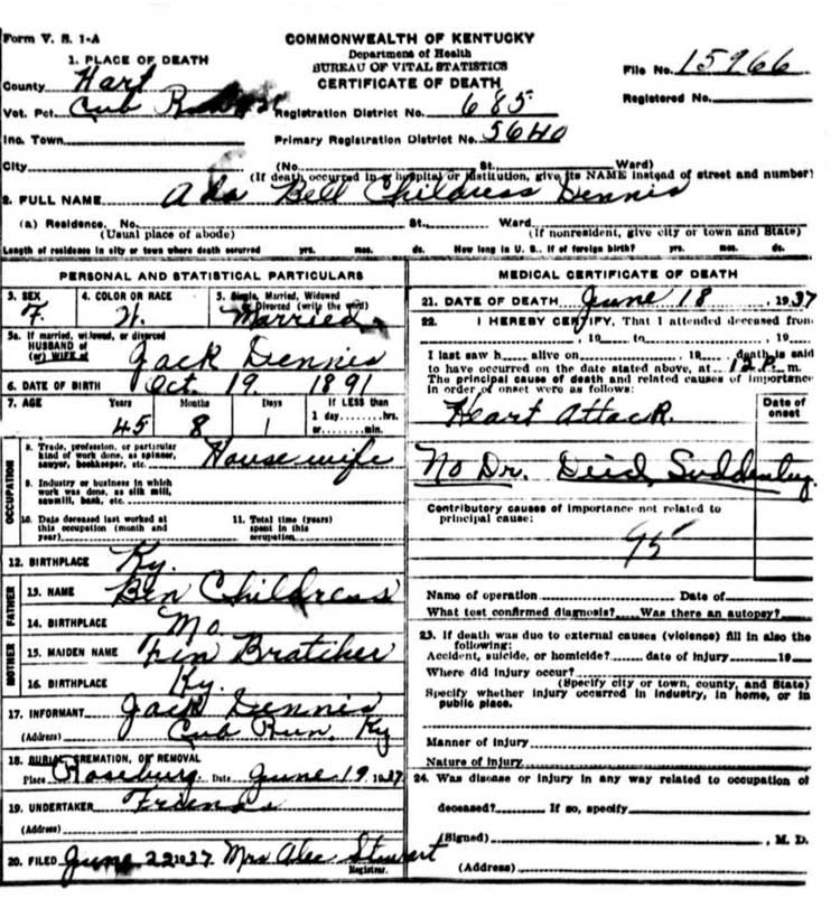 Form V. S. 1-A
COMMONWEALTH OF KENTUCKY
Department of Health
BUREAU OF VITAL STATISTICS
CERTIFICATE OF DEATH
File No. 15966
Registered No.
1. PLACE OF DEATH
County Hart
Vot. Pct. Cub
Registration District No. 685
Inc. Town
Primary Registration District No. 5640
City (No. St. Ward)
(If death occurred in a hospital or institution, give its NAME instead of street and number)
2. FULL NAME Ada Bell Childress Dennis
(a) Residence. No. St. Ward
(Usual place of abode) (If nonresident, give city or town and State)
Length of residence in city or town where death occurred yrs. mos. ds. How long in U. S., if of foreign birth? yrs. mos. ds.
PERSONAL AND STATISTICAL PARTICULARS
3. SEX F.
4. COLOR OR RACE W.
5. Single, Married, Widowed
or Divorced (write the word)
Married
5a. If married, widowed, or divorced
HUSBAND of
(or) WIFE of Jack Dennis
6. DATE OF BIRTH Oct. 19. 1891
7. AGE Years Months Days If LESS than
1 day hrs.
or min.
45 8 1
OCCUPATION
8. Trade, profession, or particular
kind of work done, as spinner,
sawyer, bookkeeper, etc. House wife
9. Industry or business in which
work was done, as silk mill,
sawmill, bank, etc.
10. Date deceased last worked at
this occupation (month and
year)
11. Total time (years)
spent in this
occupation
12. BIRTHPLACE Ky.
FATHER
13. NAME Ben Childress
14. BIRTHPLACE Mo.
MOTHER
15. MAIDEN NAME Bratcher
16. BIRTHPLACE Ky.
17. INFORMANT Jack Dennis
(Address) Cub Run, Ky
18. BURIAL, CREMATION, OR REMOVAL
Place Roseburg. Date June 19 1937
19. UNDERTAKER Friends
(Address)
20. FILED June 22 1937 Mrs Alec Stewart
Registrar.
MEDICAL CERTIFICATE OF DEATH
21. DATE OF DEATH June 18, 1937
22. I HEREBY CERTIFY, That I attended deceased from
, 19 to , 19
I last saw h alive on , 19 death is said
to have occurred on the date stated above, at 12 P. m.
The principal cause of death and related causes of importance
in order of onset were as follows:
Date of
onset
Heart Attack.
No Dr. Deid Suddenley.
Contributory causes of importance not related to
principal cause:
95
Name of operation Date of
What test confirmed diagnosis? Was there an autopsy?
23. If death was due to external causes (violence) fill in also the
following:
Accident, suicide, or homicide? date of injury 19
Where did injury occur?
(Specify city or town, county, and State)
Specify whether injury occurred in industry, in home, or in
public place.
Manner of injury
Nature of injury
24. Was disease or injury in any way related to occupation of
deceased? If so, specify
(Signed) , M. D.
(Address)